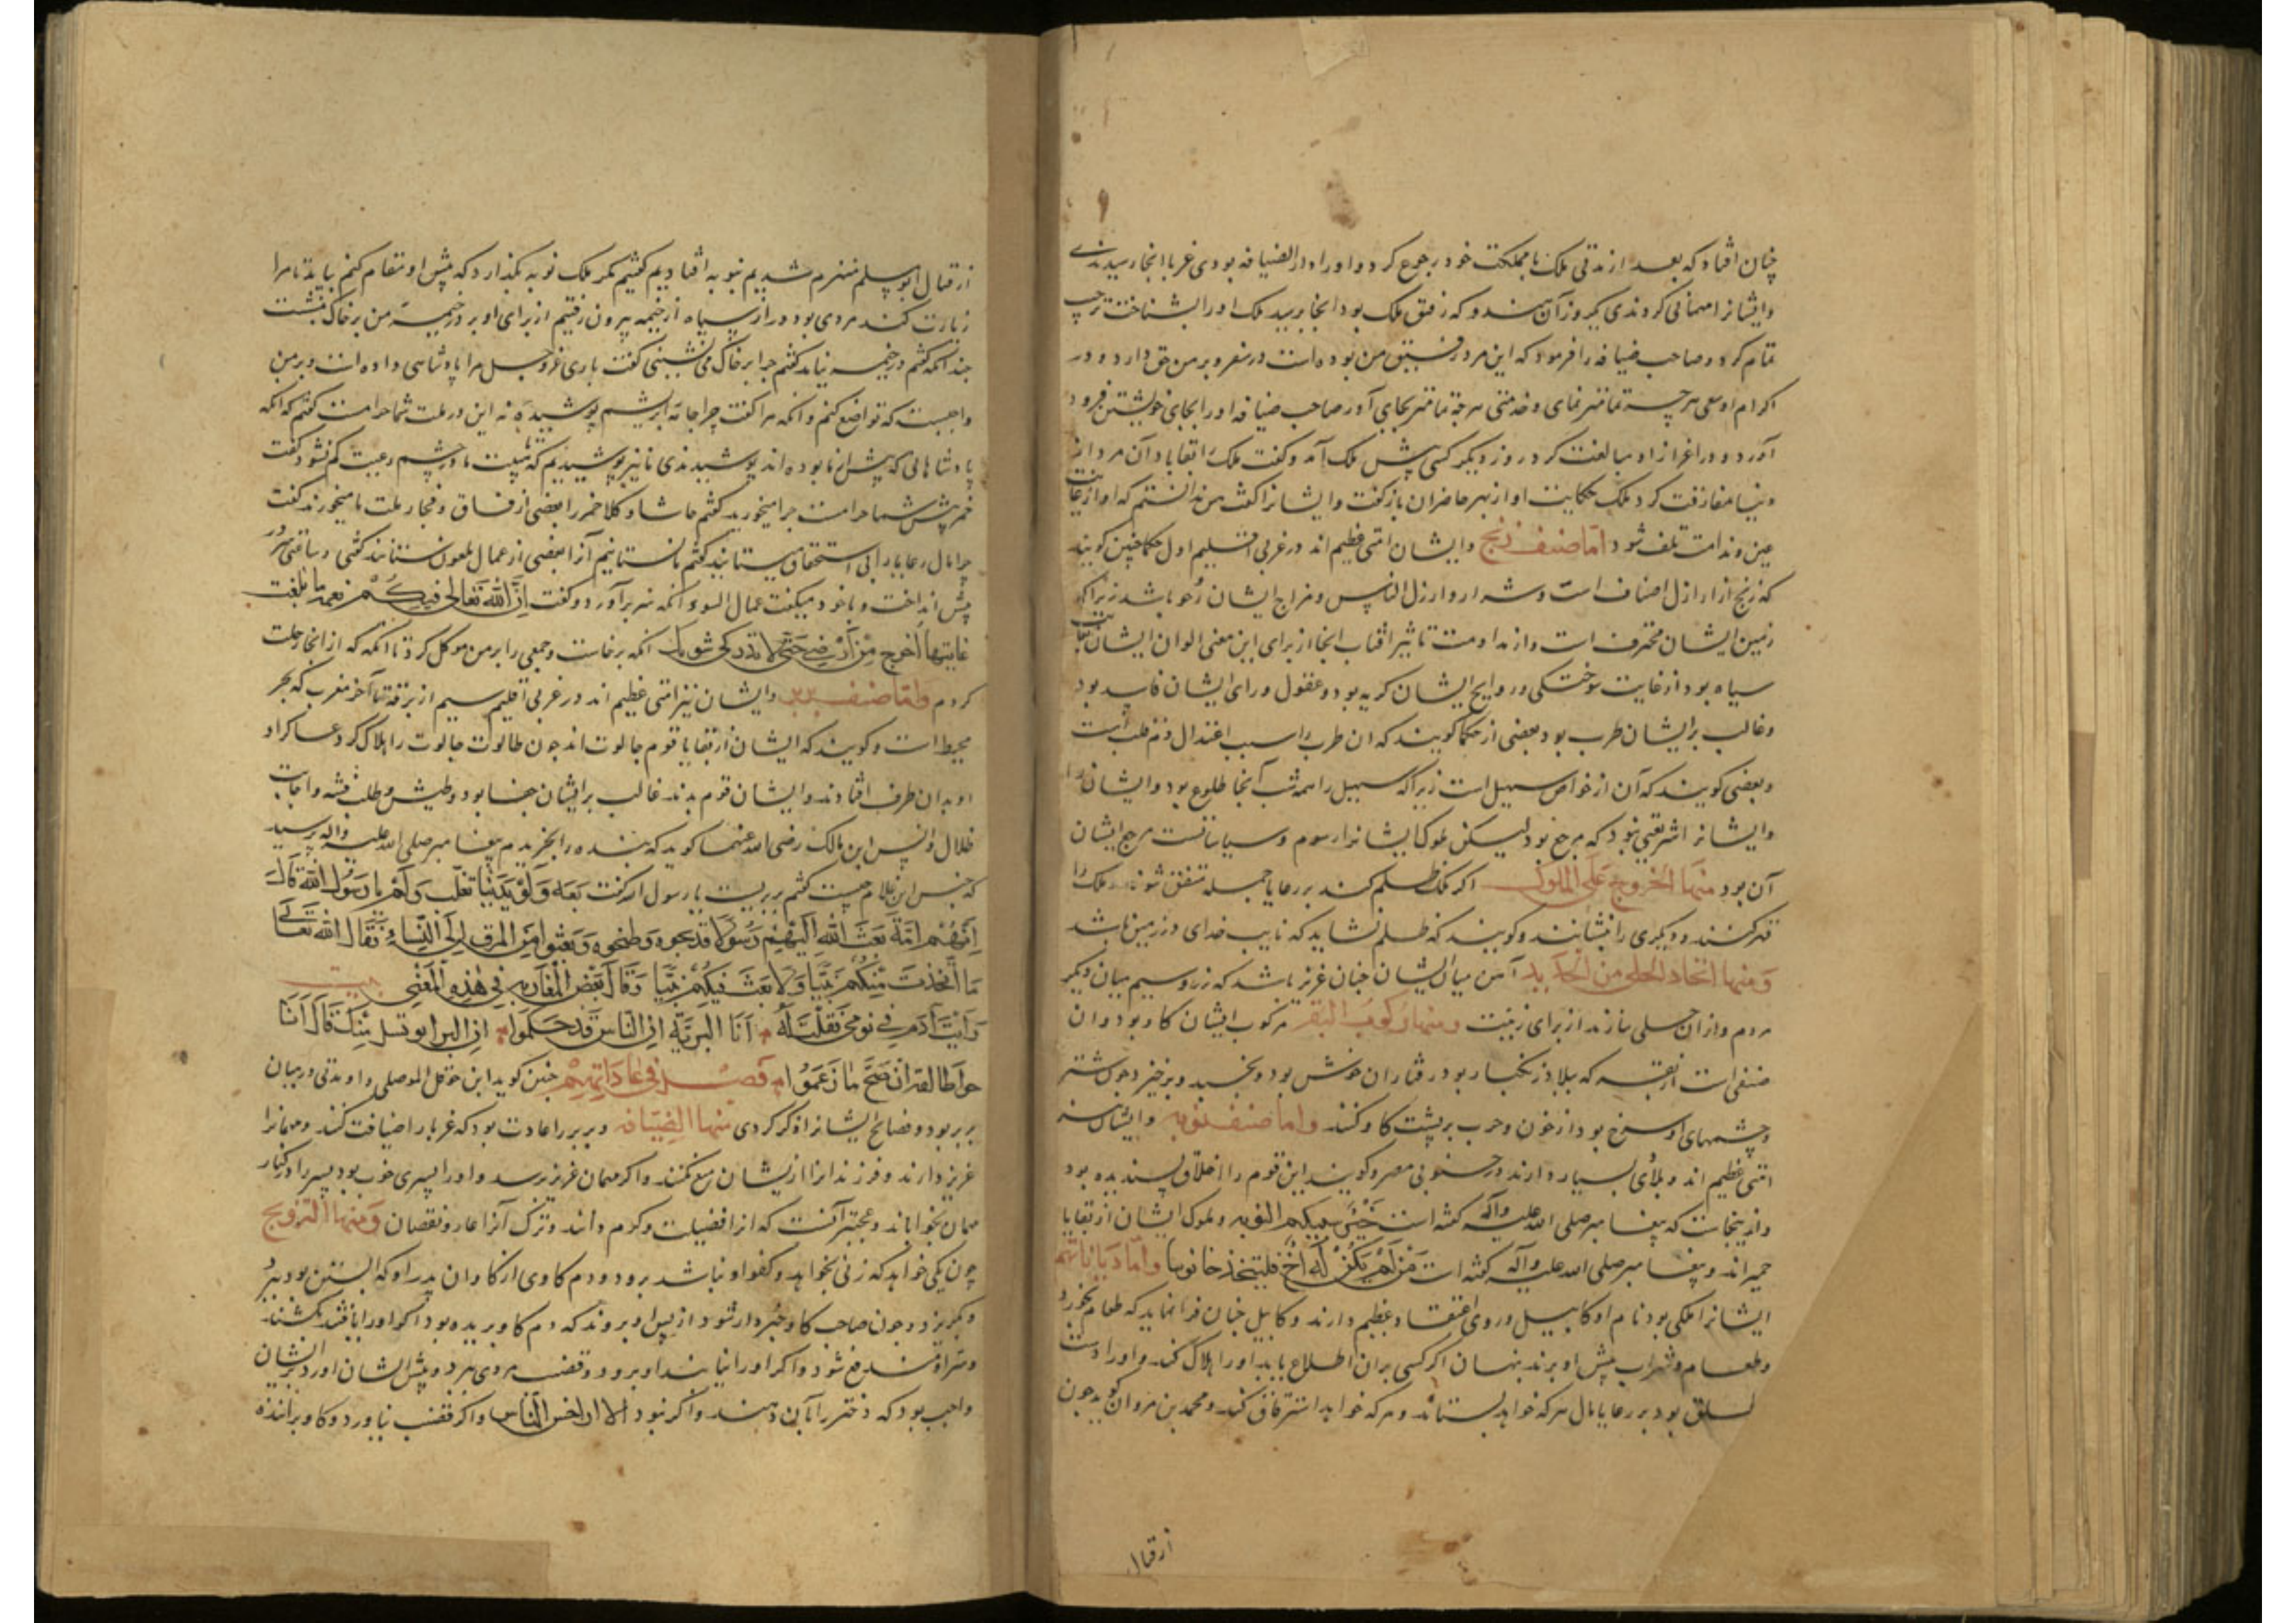 چنان افتاد که بعد از مدتی ملک با مملکت خود رجوع کرد و او را دار الضیافه بودی غربا انجا رسیدندی
و ایشانرا مهمانی کردندی یکروز آن هندو که رفیق ملک بود انجا رسید ملک او را بشناخت ترحیب
تمام کرد و صاحب ضیافه را فرمود که این مرد رفیق من بوده است در سفر و بر من حق دارد و در
اکرام او سعی هر چه تمامتر نمای و خدمتی هر چه تمامتر بجای آور صاحب ضیافه او را بجای خویشتن فرود
آورد و در اعزاز او مبالغت کرد روز دیکر کسی پیش ملک آمد و گفت ملک را بقا باد آن مرد از
دنیا مفارقت کرد ملک حکایت او از بهر حاضران بازگفت و ایشانرا گفت من ندانستم که او از غایت
غبن و ندامت تلف شود اما صنف زنج و ایشان امتی عظیم اند در غربی اقلیم اول حکما چنین گویند
که زنج از ارذل اصناف است و شرار و ارذل الناس و مزاج ایشان زیرا که
زمین ایشان محترق است و از مداومت تاثیر افتاب انجا از برای این معنی الوان ایشان بغایت
سیاه بود از غایت سوختگی و روایح ایشان کریه بود و عقول و رای ایشان فاسد بود
و غالب بر ایشان طرب بود بعضی از حکما گویند که ان طرب را سبب اعتدال دم قلبست
و بعضی گویند که آن از خواص سهیل است زیرا که سهیل را همه شب آنجا طلوع بود و ایشان را
و ایشانرا شریعتی نبود که مرجع بود لیکن ملوک ایشانرا رسوم و سیاساتست مرجع ایشان
آن بود منها الخروج علی الملوک اگر ملک ظلم کند بر رعایا جمله متفق شوند و ملک را
قهر کنند و دیگری را بنشانند و گویند که ظلم نشاید که نایب خدای در زمین باشد
و منها اتخاذ الحلی من الحدید آهن میان ایشان چنان عزیز باشد که زر و سیم میان دیگر
مردم و از ان حلی سازند از برای زینت و منها رکوب البقر مرکوب ایشان گاو بود و ان
صنفی است از بقر که ببلاد زنگبار بود رفتار ان خوش بود و بخسبد و برخیزد چون شتر
و چشمهای او سرخ بود از خون و حرب بر پشت گاو کنند و اما صنف نوبه و ایشان نیز
امتی عظیم اند و بلادی بسیار دارند در جنوبی مصر و گویند این قوم را اخلاق پسندیده بود
و از اینجاست که پیغامبر صلی الله علیه وآله گفته است خیر سبیکم النوبه و ملوک ایشان از بقایا
حمیر اند و پیغامبر صلی الله علیه وآله گفته است من لم یکن له اخ فلیتخذ اخا نوبیا و اما دیاناتهم
ایشانرا ملکی بود نام او کابیل و در وی اعتقاد عظیم دارند و کابیل چنان فرا نماید که طعام نخورد
و طعام و شراب پیش او برند پنهان اگر کسی بران اطلاع یابد او را هلاک کند و او را دست
مطلق بود بر رعایا مال هر که خواهد بستاند و هر که خواهد استرقاق کند و محمد بن مروان گوید چون
از قتال
از قتال ابو مسلم منهزم شدیم بنوبه افتادیم گفتیم مگر ملک نوبه بگذارد که پیش او مقام کنیم بیامد تا مرا
زیارت کند مردی بود دراز سیاه از خیمه بیرون رفتیم از برای او بر در خیمه من بر خاک بنشست
چندانکه گفتم در خیمه نیامد گفتم چرا بر خاک می نشینی گفت باری عز وجل مرا پادشاهی داده است و بر من
واجبست که تواضع کنم وانگه مرا گفت چرا جامه ابریشم پوشیده نه این در ملت شما حرامست گفتم که انگه
پادشاهانی که پیش از ما بوده اند پوشیدندی ما نیز پوشیدیم که هیبت ما در چشم رعیت کم نشود گفت
خمر پیش شما حرامست چرا میخورید گفتم حاشا و کلا خمر را بعضی از فساق و فجار ملت ما میخورند گفت
چرا مال رعایا را بی استحقاق میستانید گفتم ما نستانیم آنرا بعضی از عمال ملعون ستانند گفتی و ساعتی سر در
پیش انداخت و با خود میگفت عمال السوء انگه سر برآورد و گفت ان الله تعالی فیکم نعمه ما بلغت
غایتها اخرج من ارضی حتی لا تدرکنی شومک انگه برخاست و جمعی را بر من موکل کرد تا انگه که از انجا رحلت
کردم و اما صنف بربر و ایشان نیز امتی عظیم اند در غربی اقلیم سیم از برقه تا آخر مغرب که بحر
محیط است و گویند که ایشان از بقایا قوم جالوت اند چون طالوت جالوت را هلاک کرد و عساکر او
او بدان طرف افتادند و ایشان قوم بدند غالب بر ایشان جفا بود و طیش و طلب فتنه و اجابت
ضلال و انس ابن مالک رضی الله عنهما گوید که بنده را بخریدم پیغامبر صلی الله علیه واله پرسید
که جنس این غلام چیست گفتم بربریست یا رسول الله گفت بعه ولو بدینار قلت ولم یا رسول الله قال
انهم امة بعث الله الیهم رسولا فذبحوه وطبخوه وبعثوا من المرق الی النساء فقال الله تعالی
ما اتخذت منکم نبیا ولا بعثت فیکم نبیا وقال بعض المغاربه فی هذه المعنی بیت
رایت آدم فی نومی فقلت له انا البریة ان الناس قد حکموا ان البرابر نسل منک قال انا
حوا طالقة ان صح ما زعموا فصل فی عاداتهم چنین گوید ابن حوقل الموصلی و او مدتی در میان
بربر بود و فضایح ایشانرا ذکر کردی منها الضیافه و بربر را عادت بود که غربا را ضیافت کنند و مهمانرا
عزیز دارند و فرزندانرا از ایشان منع نکنند و اگر مهمان عزیز رسد و او را پسری خوب بود پسر را در کنار
مهمان بخواباند و عجبتر آنست که انرا فضیلت و کرم دانند و ترک آنرا عار و نقصان و منها التزویج
چون یکی خواهد که زنی بخواهد و کفو او نباشد برود و دم گاوی از گاوان پدر او که آبستن بود ببرد
و بگریزد و چون صاحب گاو خبردار شود از پس او بروند که دم گاو بریده بود اگر او را یابند بکشند
و شر او دفع شود و اگر او را نیابند او برود و قضیب مردی ببرد و پیش ایشان اورد بر ایشان
واجب بود که دختر را بآن دهند و اگر نبود الا ان اخس الناس و اگر قضیب نیاورد و گاو برانده